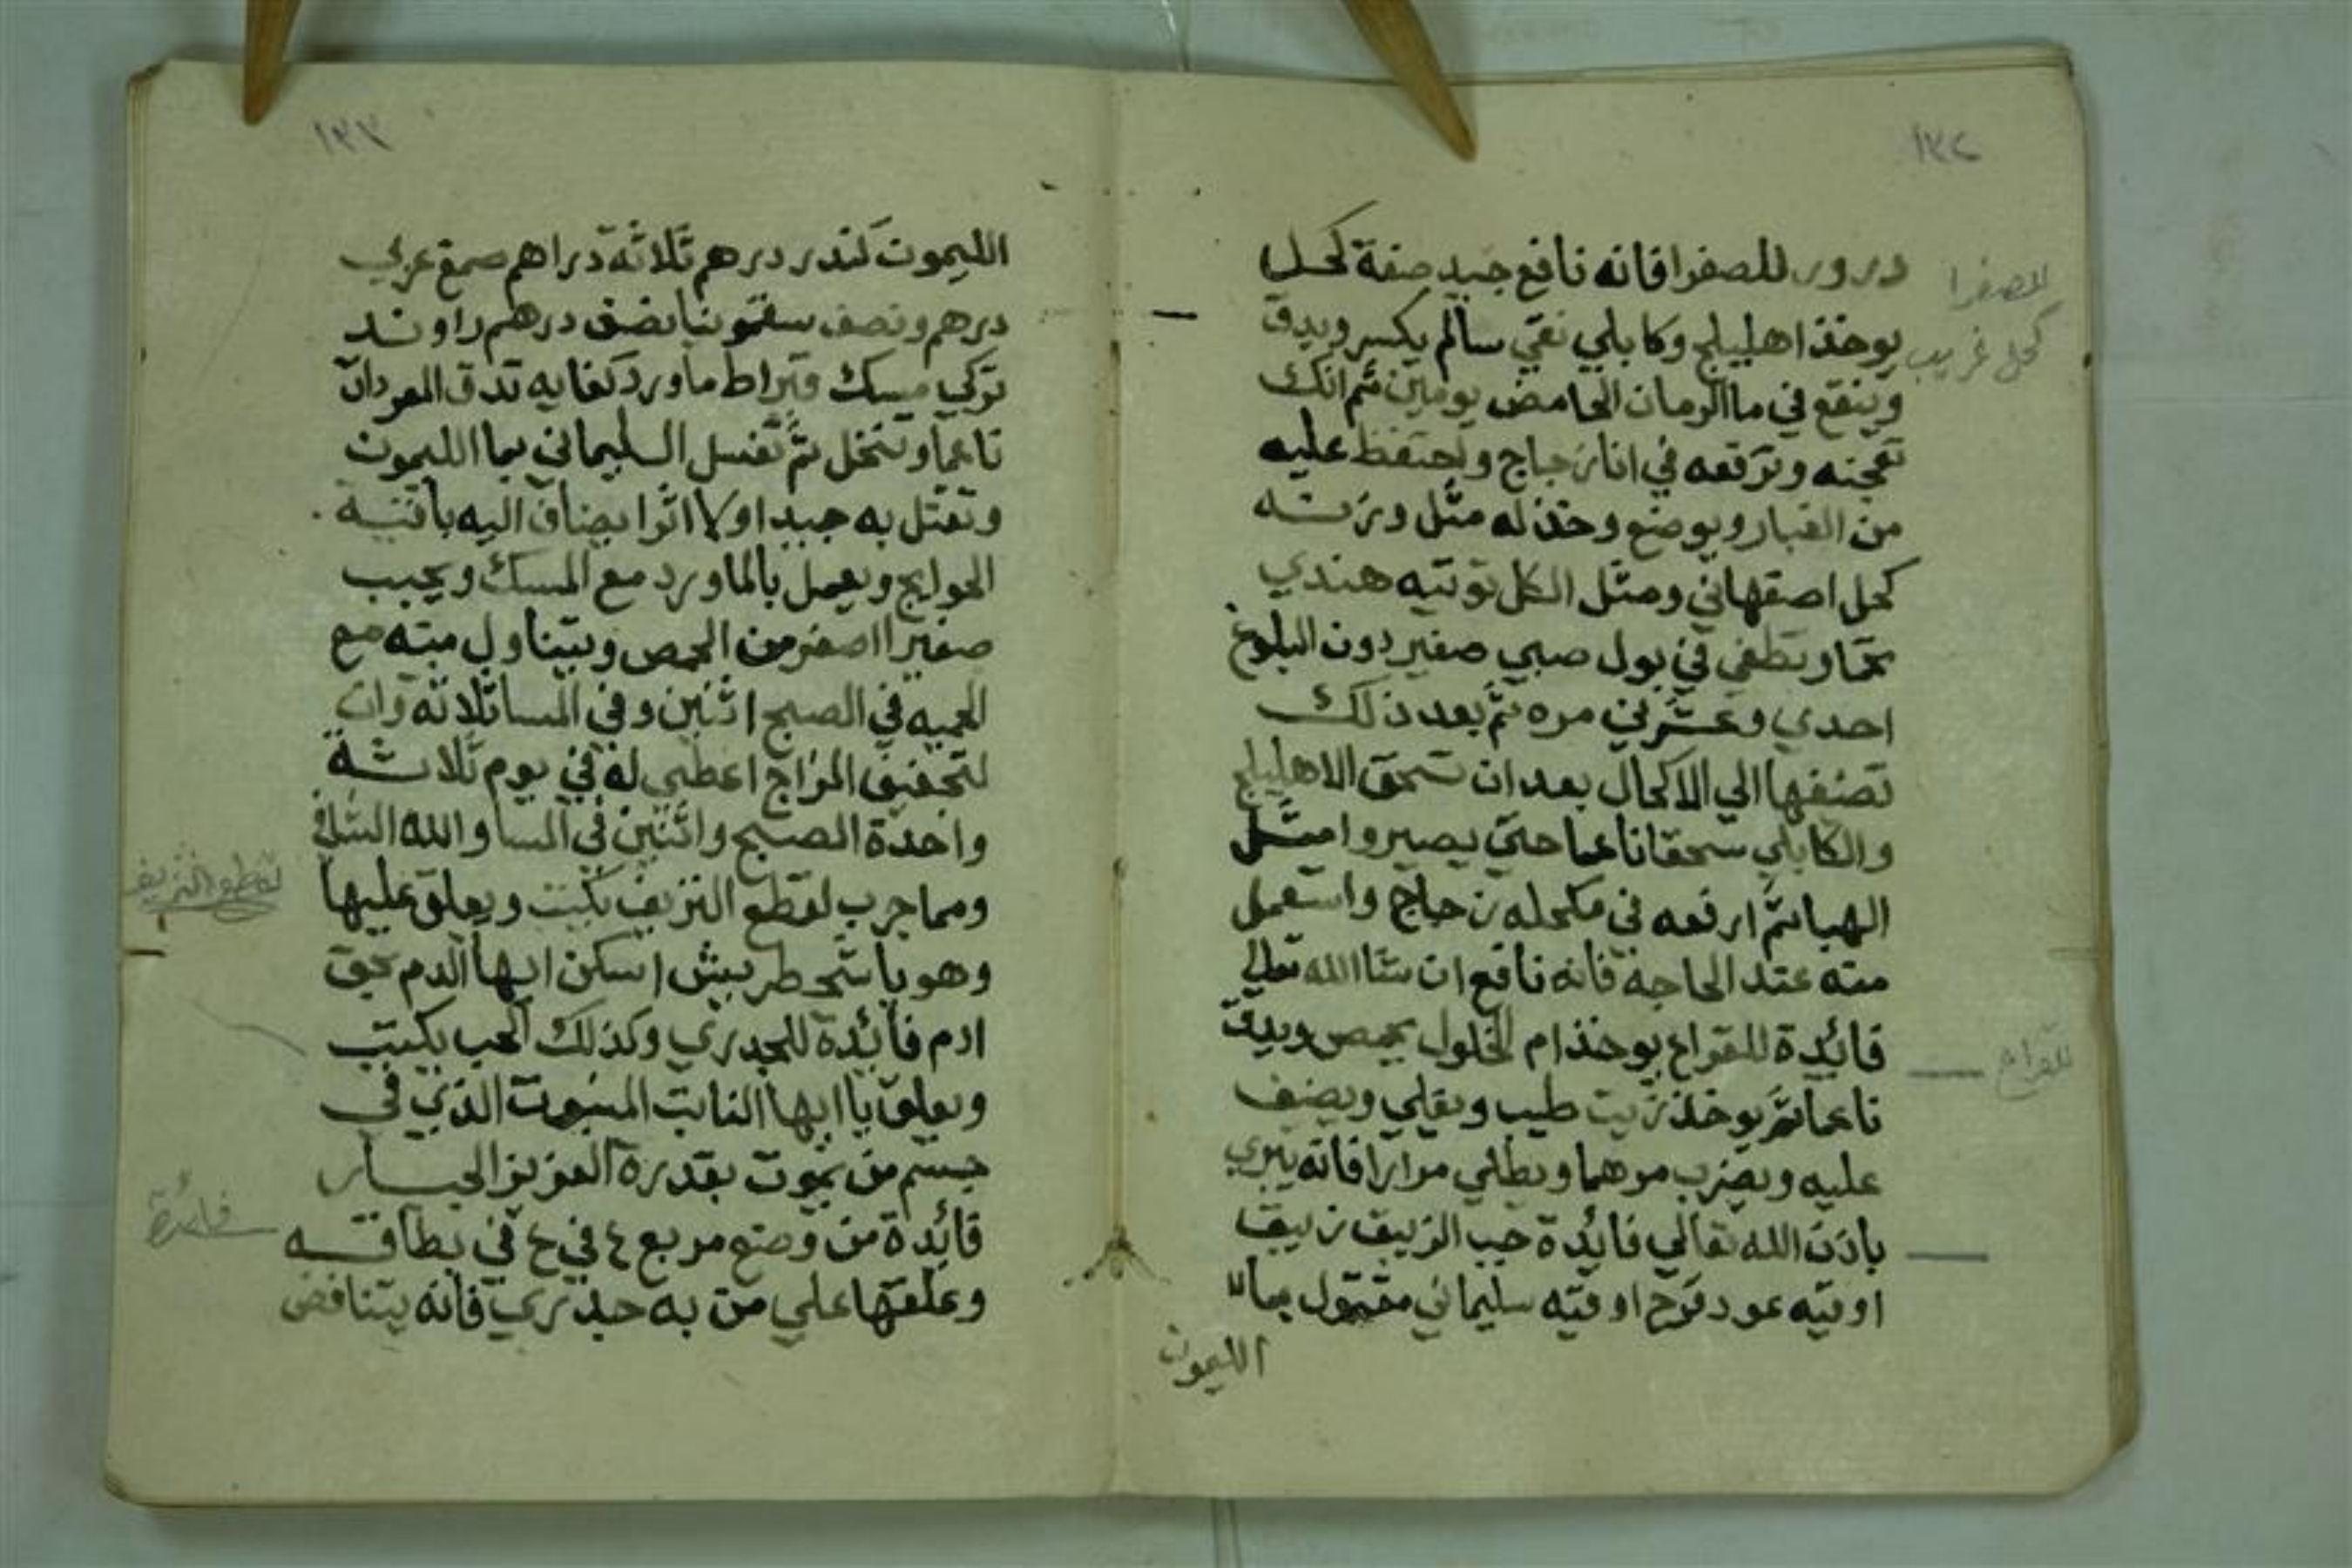 درور للصفرا فانه نافع جيد صفة كحل
يوخذ اهليلج وكابلي نقي سالم يكسر ويدق
وينقع في ما الرمان الحامض يومين ثم انك
تعجنه وترفعه في انا زجاج وتحتفظ عليه
من الغبار ويوضع وخذ له مثل وزنه
كحل اصفهاني ومثل الكل توتيه هندي
تحما وتطفي في بول صبي صغير دون البلوغ
احدي وعشرين مره ثم بعد ذلك
تضيفها الي الاكحال بعد ان تسحق الاهليلج
والكابلي سحقا ناعما حتي يصيروا مثل
الهبا ثم ارفعه في مكحله زجاج واستعمل
منه عند الحاجة فانه نافع ان شا الله تعالي
فائدة للقراع يوخذ ام الخلول يحمص ويدق
ناعما ثم يوخذ زيت طيب ويقلي ويضيف
عليه ويضرب مرهما ويطلي مرارا فانه يبري
باذن الله تعالي فائدة حب الزيبق زيبق
اوقيه عود قرح اوقيه سليماني مقتول بما
الليمون
للصفرا
كحل غريب
للقراع
١٣٣
الليمون كندر درهم ثلاثة دراهم صمغ عربي
درهم ونصف سقمونيا نصف درهم راوند
تركي مسك قيراط ماورد كفايه تدق المفردات
ناعما وتنخل ثم تغسل السليماني بما الليمون
وتقتل به جيدا اولا اثرا يضاف اليه باقية
الحوايج ويعمل بالماورد مع المسك ويحبب
صغيرا اصغر من الحمص ويتناول منه مع
الحميه في الصبح اثنين وفي المسا ثلاثه وان
لتجفيف المزاج اعطي له في يوم ثلاثة
واحدة الصبح واثنين في المسا والله الشافي
ومما جرب لقطع النزيف يكتب ويعلق عليها
وهو باشمخطريش اسكن ايها الدم بحق
ادم فائدة للجدري وكذلك الحب يكتب
ويعلق يا ايها النابت المنبوت الذي في
جسم من يموت بقدرة العزيز الجبار
فائدة من وضع مربع ٤ في ٤ في بطاقه
وعلقها علي من به جدري فانه يتناقض
لقطع النزيف
فائدة